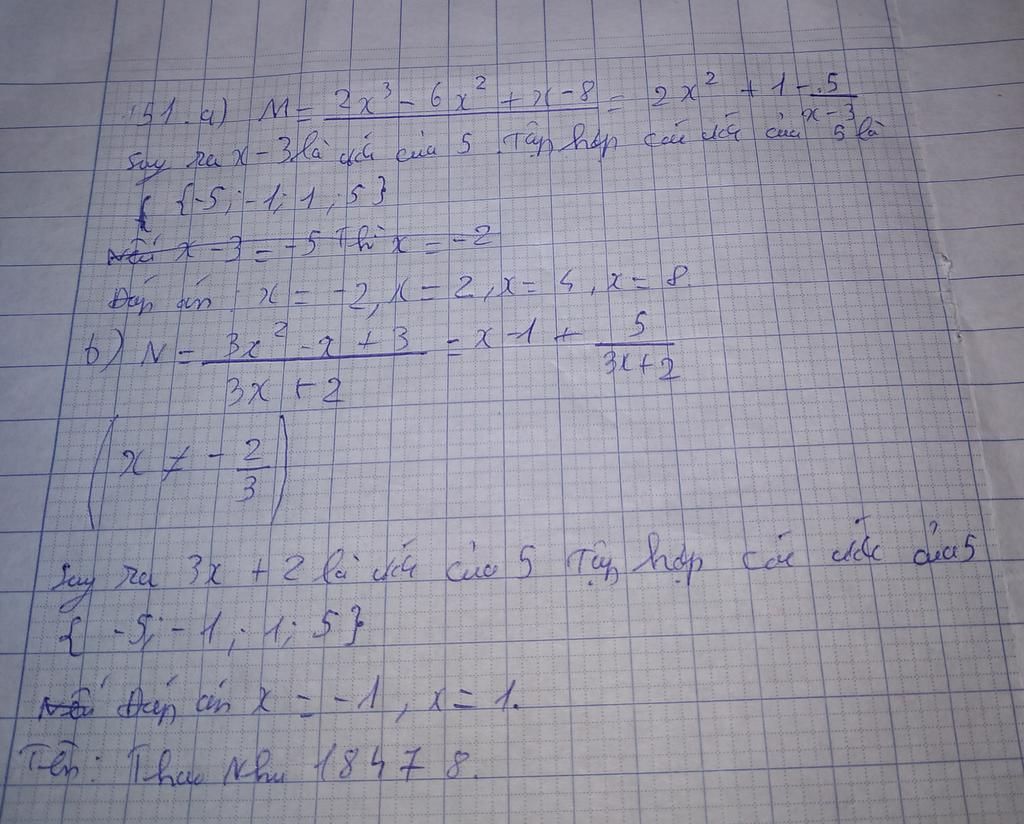 151. a) M = 2x³ - 6x² + x - 8 = 2x² + 1 - 5/(x - 3)
Suy ra x - 3 là ước của 5. Tập hợp các ước của 5 là
{ {-5; -1; 1; 5}
Nếu x - 3 = -5 Thì x = -2
Đáp án: x = -2, x = 2, x = 4, x = 8.
b) N = (3x² - x + 3)/(3x + 2) = x - 1 + 5/(3x + 2)
(x ≠ -2/3)
Suy ra 3x + 2 là ước của 5 Tập hợp các ước của 5
{ -5; -1; 1; 5}
Nếu Đáp án x = -1, x = 1.
Tên: Thảo Như 18478.